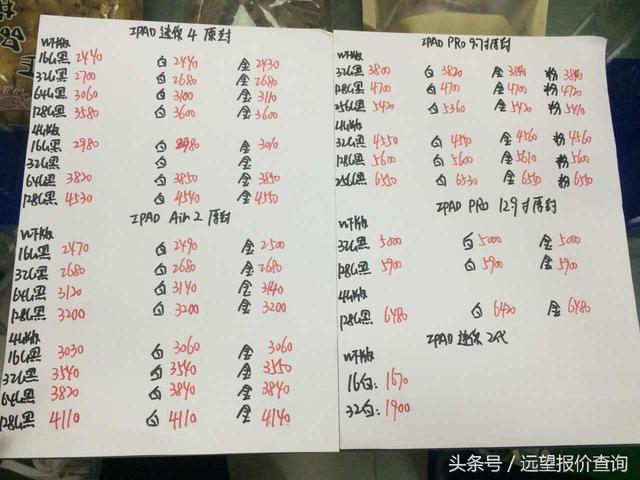 IPAD 迷你 4 原封
WF版
16G黑 2440 白 2440 金 2430
32G黑 2700 白 2680 金 2680
64G黑 3060 白 3100 金 3110
128G黑 3580 白 3600 金 3600
4G版
16G黑 2980 白 2980 金 3010
32G黑 白 金
64G黑 3820 白 3850 金 3850
128G黑 4530 白 4540 金 4550
IPAD Air 2 原封
WF版
16G黑 2470 白 2490 金 2500
32G黑 2680 白 2680 金 2680
64G黑 3120 白 3140 金 3140
128G黑 3200 白 3200 金 3200
4G版
16G黑 3030 白 3060 金 3060
32G黑 3540 白 3540 金 3550
64G黑 3820 白 3840 金 3840
128G黑 4110 白 4110 金 4140
IPAD PRO 9.7寸原封
WF版
32G黑 3800 白 3820 金 3840 粉 3840
128G黑 4700 白 4700 金 4700 粉 4720
256G黑 5420 白 5360 金 5420 粉 5410
4G版
32G黑 4550 白 4550 金 4560 粉 4560
128G黑 5600 白 5600 金 5610 粉 5600
256G黑 6550 白 6530 金 6550 粉 6550
IPAD PRO 129寸原封
WF版
32G黑 5000 白 5000 金 5000
128G黑 5900 白 5900 金 5900
4G版
128G黑 6480 白 6420 金 6480
IPAD 迷你 2代
WF版
16白: 1670
32白: 1900
头条号／远望报价查询